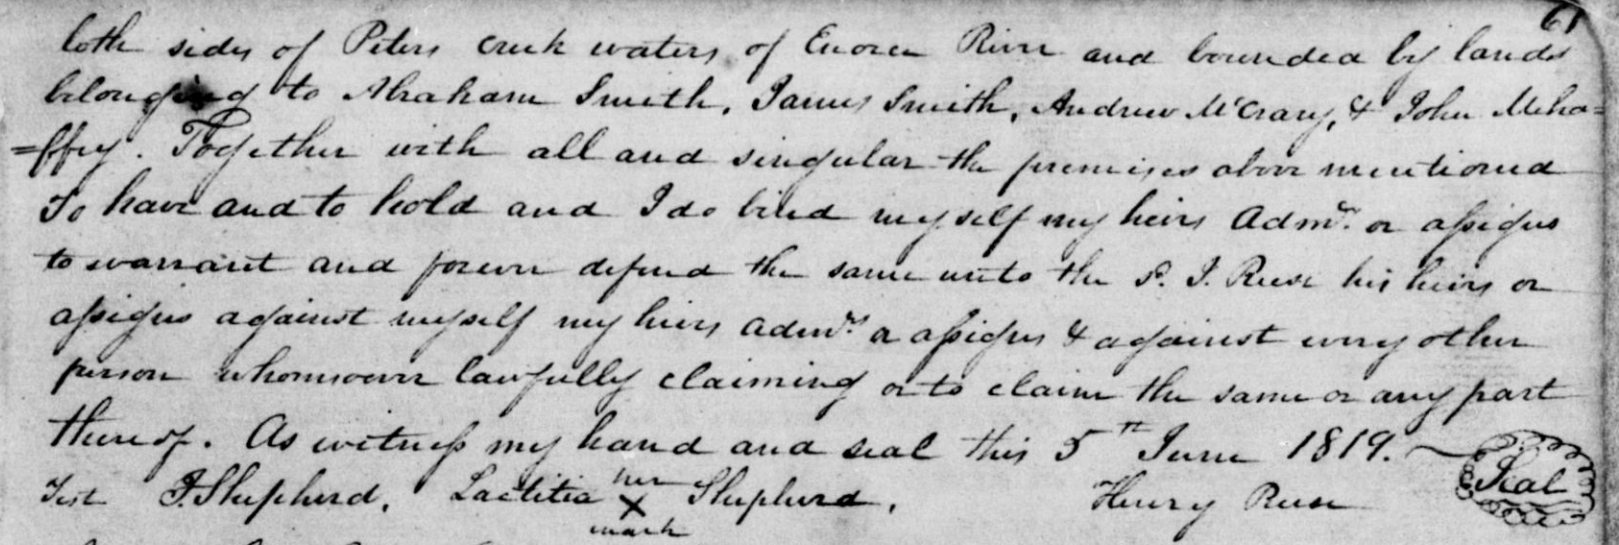 61
both sides of Peters creek waters of Enoree River and bounded by lands
belonging to Abraham Smith, James Smith, Andrew McCrary, & John Meha=
=ffey. Together with all and singular the premises above mentioned
To have and to hold and I do bind myself my heirs Admrs. or assigns
to warrant and forever defend the same unto the sd. J. Reese his heirs or
assigns against myself my heirs admrs. or assigns & against every other
person whomsoever lawfully claiming or to claim the same or any part
thereof. As witness my hand and seal this 5th June 1819.
Test J. Shepherd, Laetitia her X mark Shepherd, Henry Reese Seal